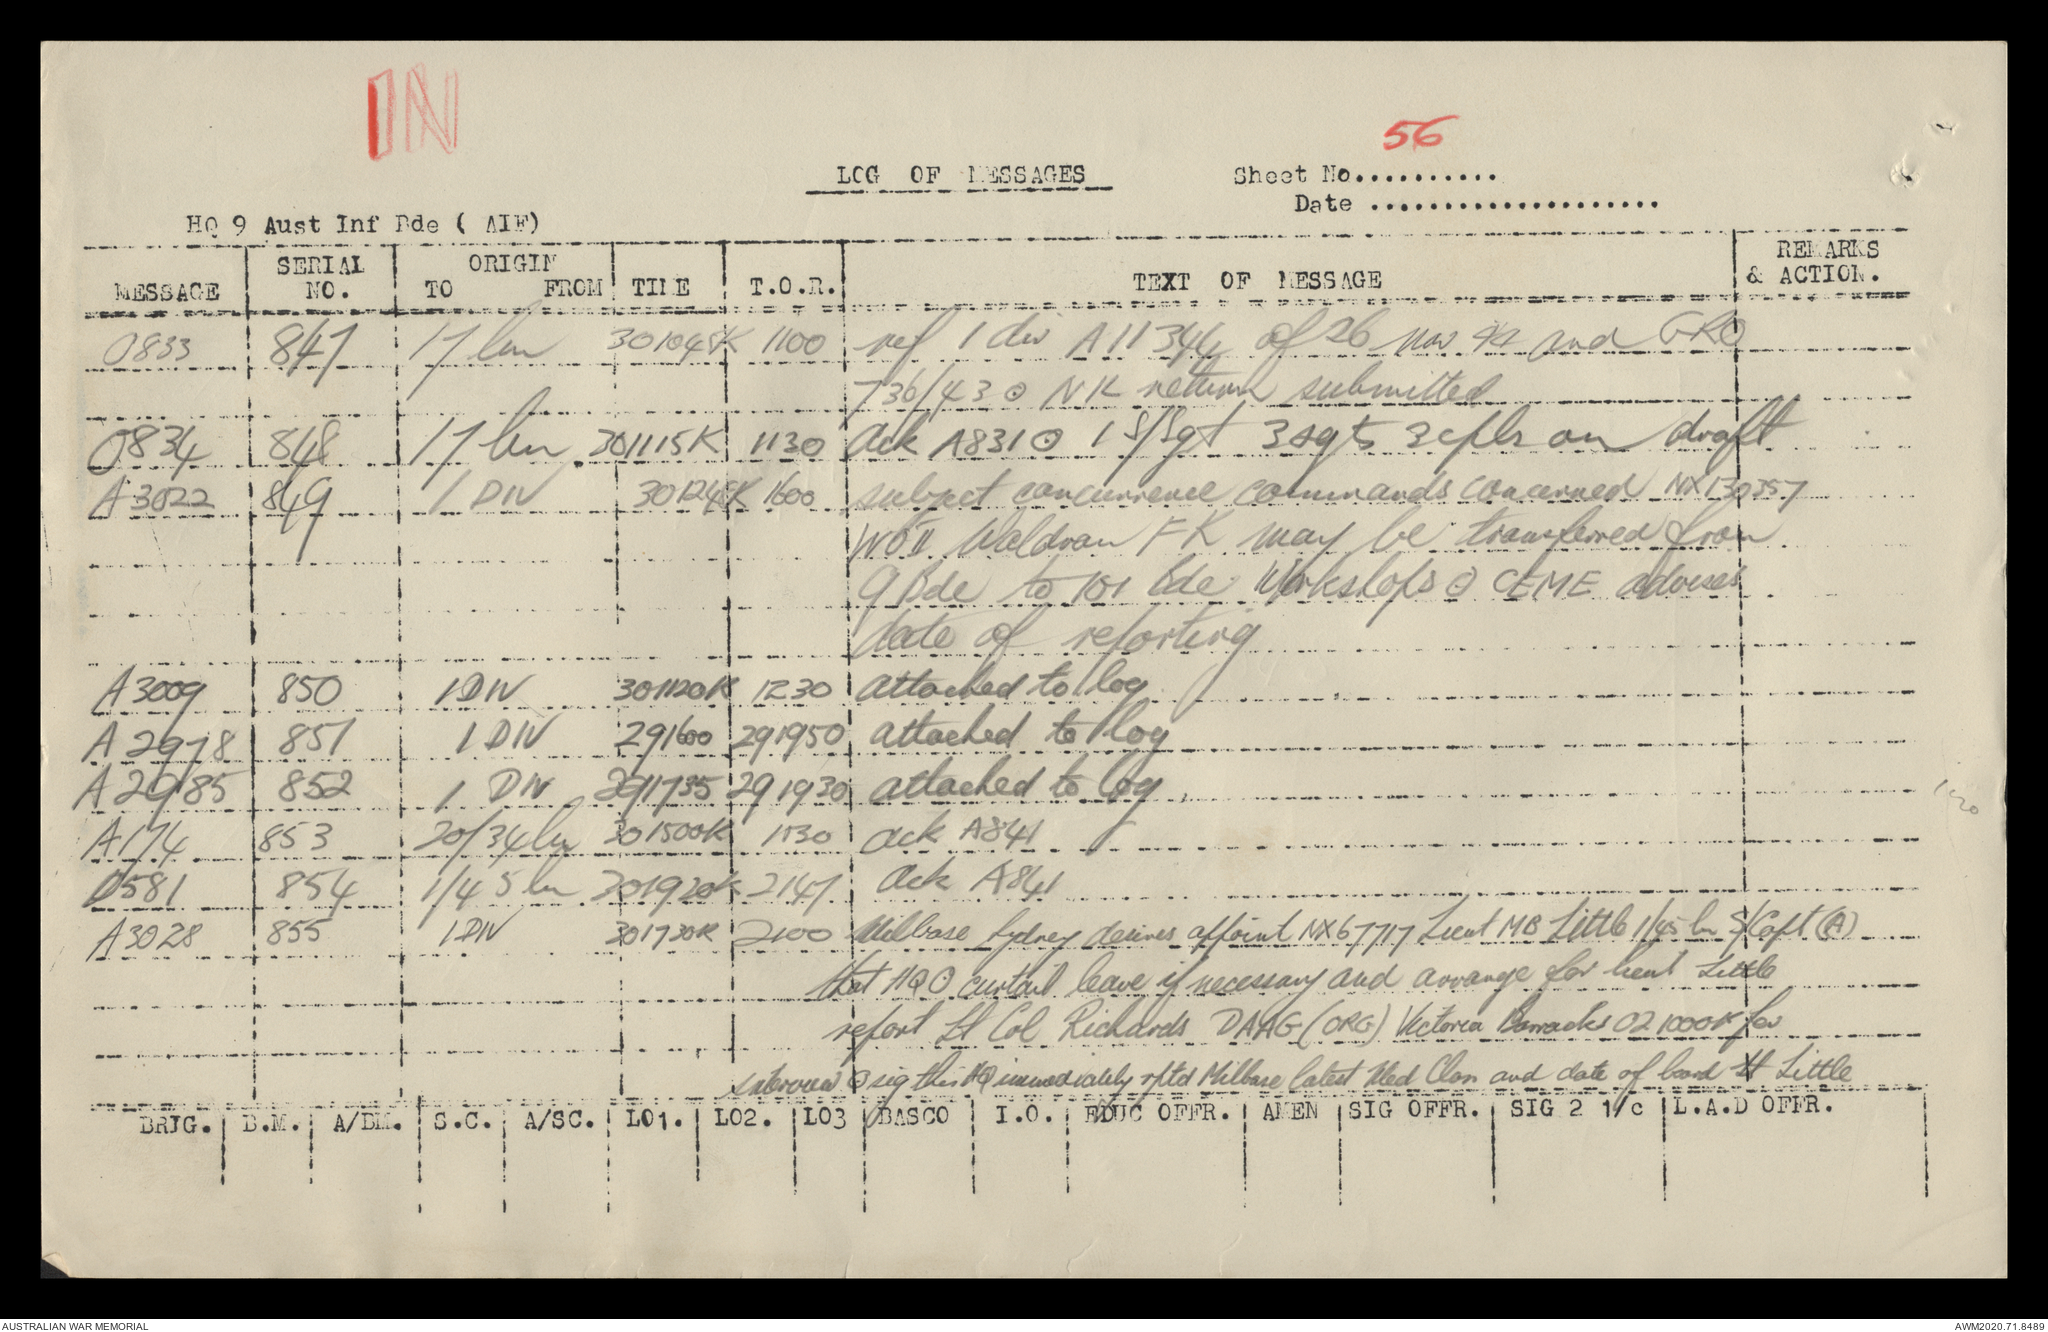 IN
56
LOG OF MESSAGES
Sheet No..........
Date ....................
HQ 9 Aust Inf Bde ( AIF)
MESSAGE SERIAL NO. ORIGIN TO FROM TIME T.O.R. TEXT OF MESSAGE REMARKS & ACTION.
O833 847 17 bn 301045K 1100 ref 1 div A11344 of 26 nov 44 and GRO
736/43 ⊙ NK return submitted
O834 848 17 bn 301115K 1130 ack A831 ⊙ 1 S/Sgt 3 sgts 3 cpls on draft
A3022 849 1 DIV 301245K 1600 subject concurrence commands concerned NX130357
WOII Waldron FK may be transferred from
9 Bde to 101 Bde Workshops ⊙ CEME advises
date of reporting
A3009 850 1 DIV 301120K 1230 attached to log
A2978 851 1 DIV 291600 291950 attached to log
A2985 852 1 DIV 291735 291930 attached to log
A174 853 20/34 bn 301500K 1530 ack A841
O581 854 1/45 bn 301920K 2147 ack A841
A3028 855 1 DIV 301730K 2100 Milbase Sydney desires appoint NX67717 Lieut MB Little 1/45 bn S/Capt (A)
that HQ ⊙ curtail leave if necessary and arrange for Lieut Little
report Lt Col Richards DAAG (ORG) Victoria Barracks 021000K for
interview ⊙ sig this HQ immediately rptd Milbase latest Med Clsn and date of board Lt Little
BRIG. B.M. A/BM. S.C. A/SC. LO1. LO2. LO3 BASCO I.O. EDUC OFFR. AMEN SIG OFFR. SIG 2 i/c L.A.D OFFR.
AUSTRALIAN WAR MEMORIAL
AWM2020.71.8489